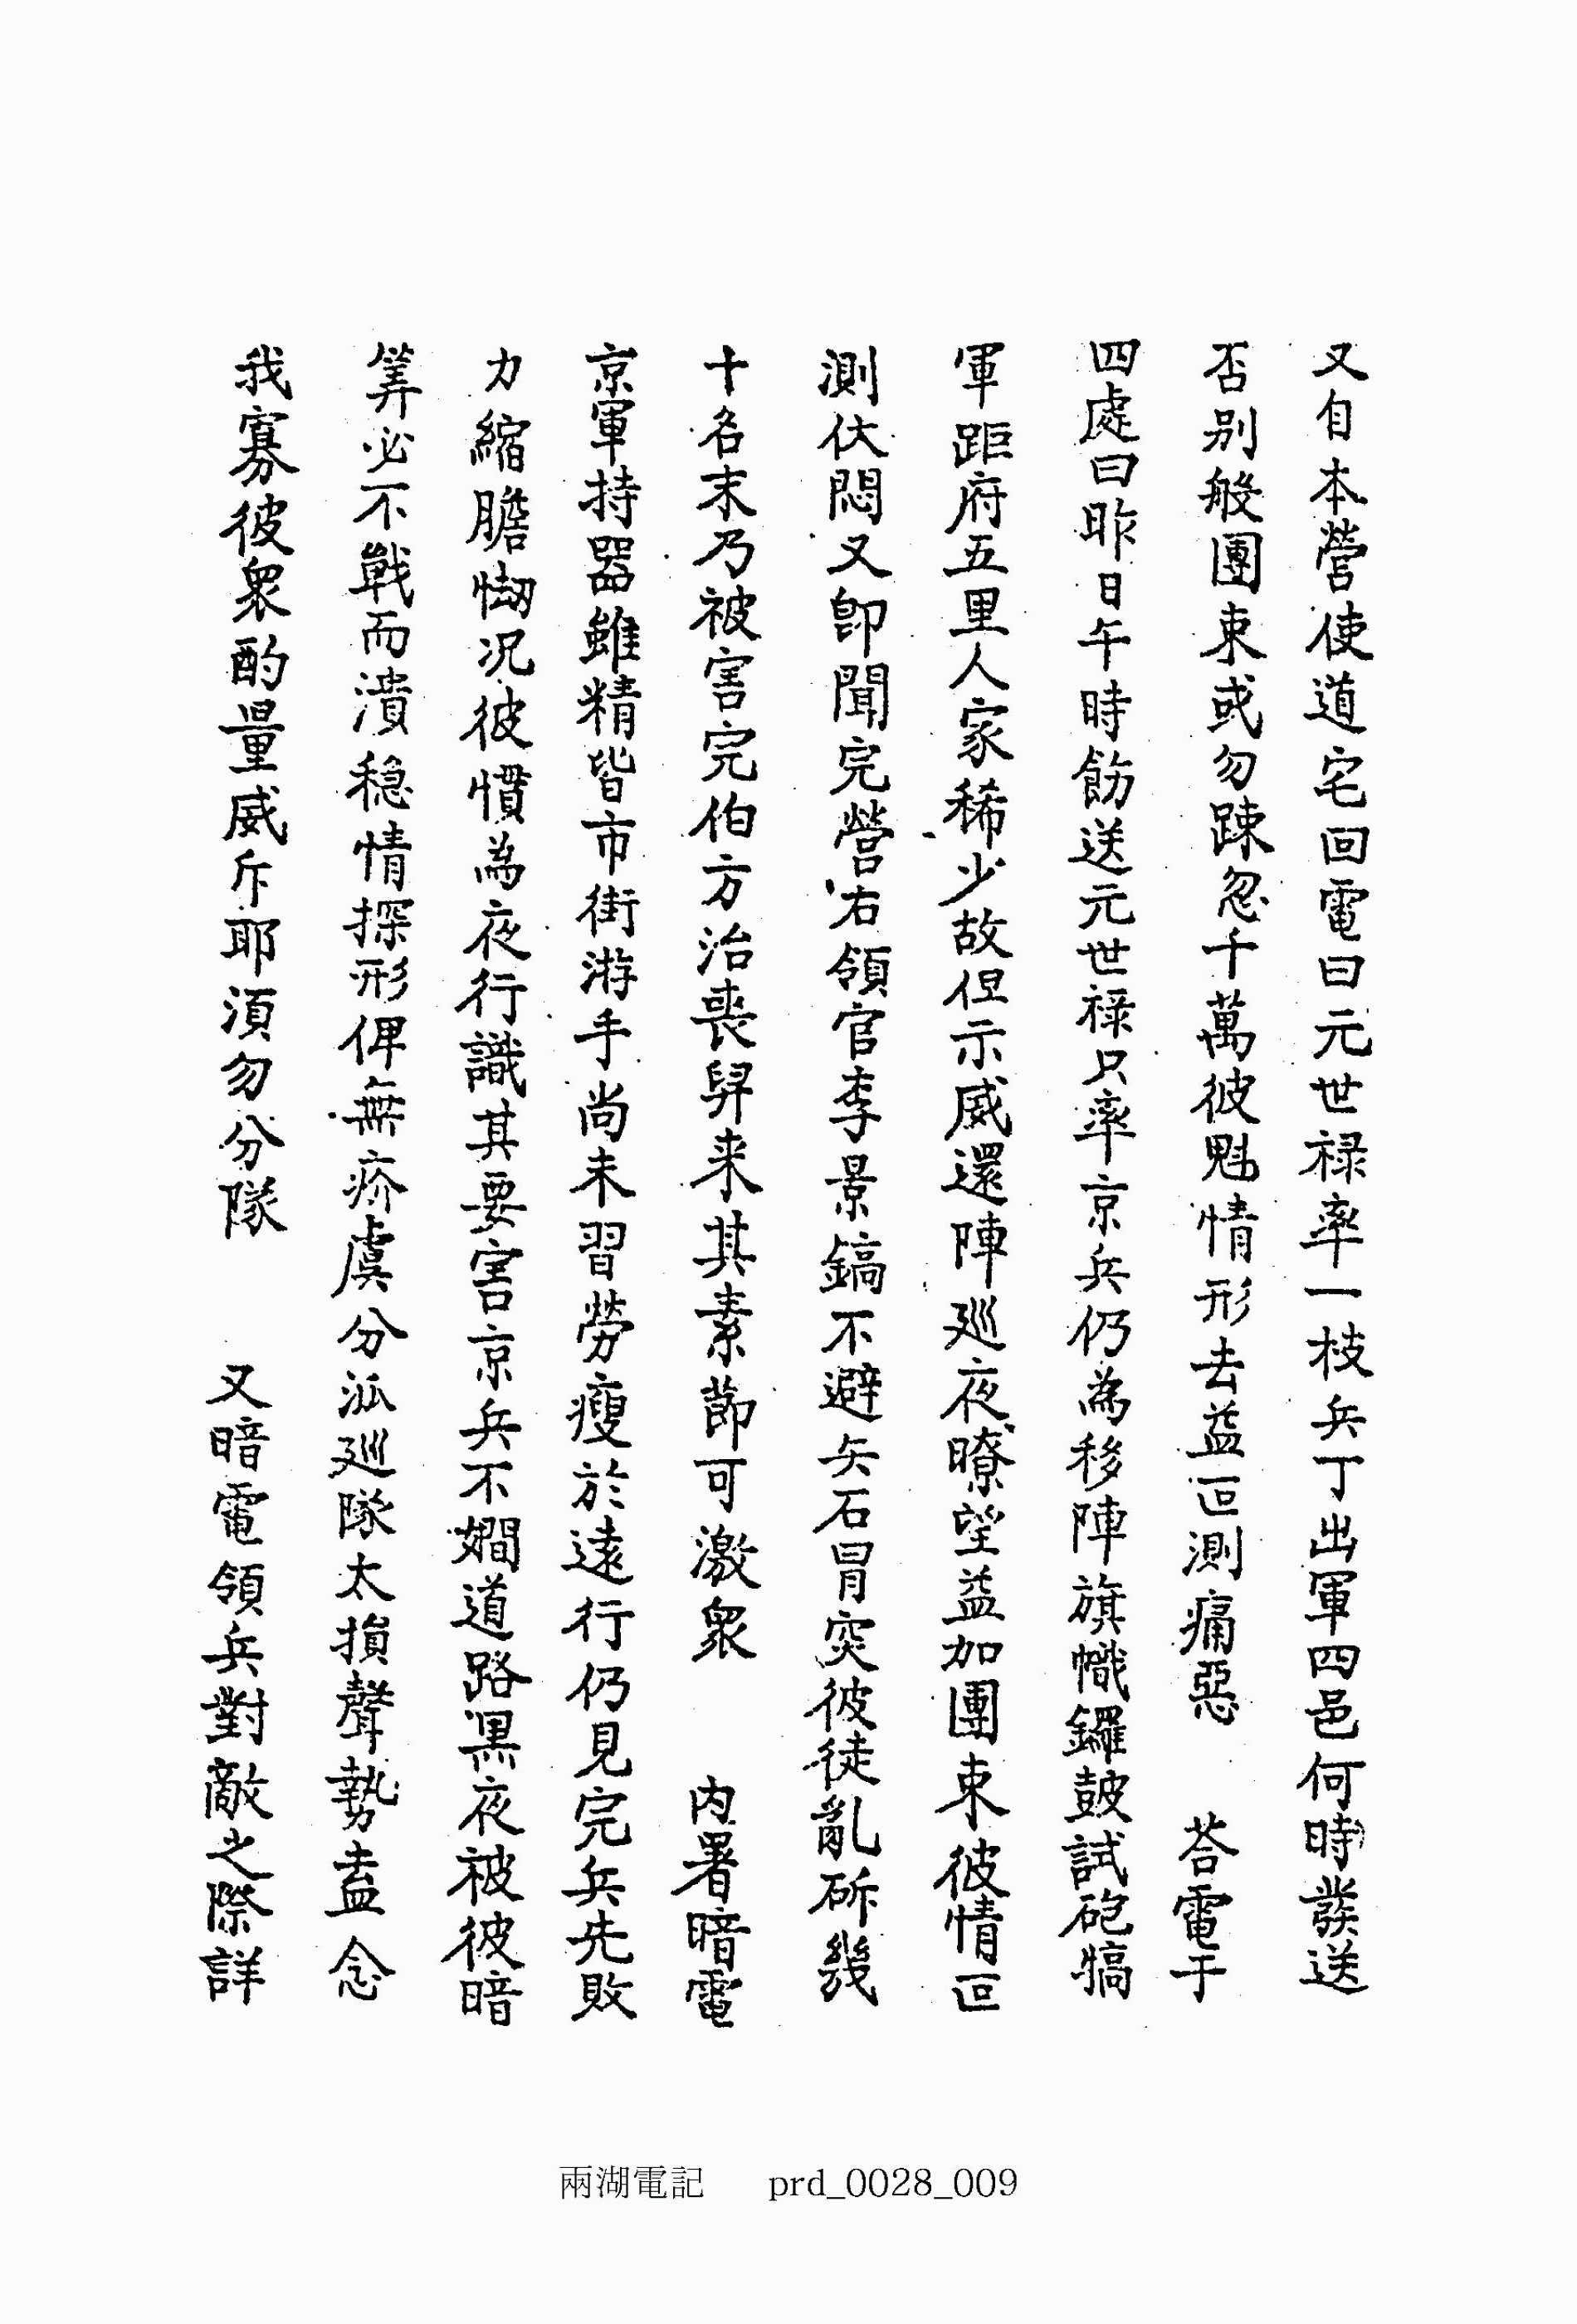 又自本營使道宅回電曰元世祿率一枝兵丁出軍四邑何時發送
否別般團束或勿踈忽千萬彼魁情形去益叵測痛惡　荅電于
四處曰昨日午時飭送元世祿只率京兵仍為移陣旗幟鑼鼓試砲犒
軍距府五里人家稀少故但示威還陣廵夜瞭望益加團束彼情叵
測伏悶又卽聞完營右領官李景鎬不避矢石冒突彼徒亂斫幾
十名末乃被害完伯方治喪舁来其素節可激衆　內署暗電
京軍持器雖精皆市街游手尚未習勞瘦於遠行仍見完兵先敗
力縮膽㤼况彼慣為夜行識其要害京兵不嫺道路黑夜被彼暗
筭必不戰而潰穏情探形俾無疥虞分派廵隊太損聲勢盍念
我寡彼衆酌量威斥耶須勿分隊　又暗電領兵對敵之際詳
兩湖電記 prd_0028_009